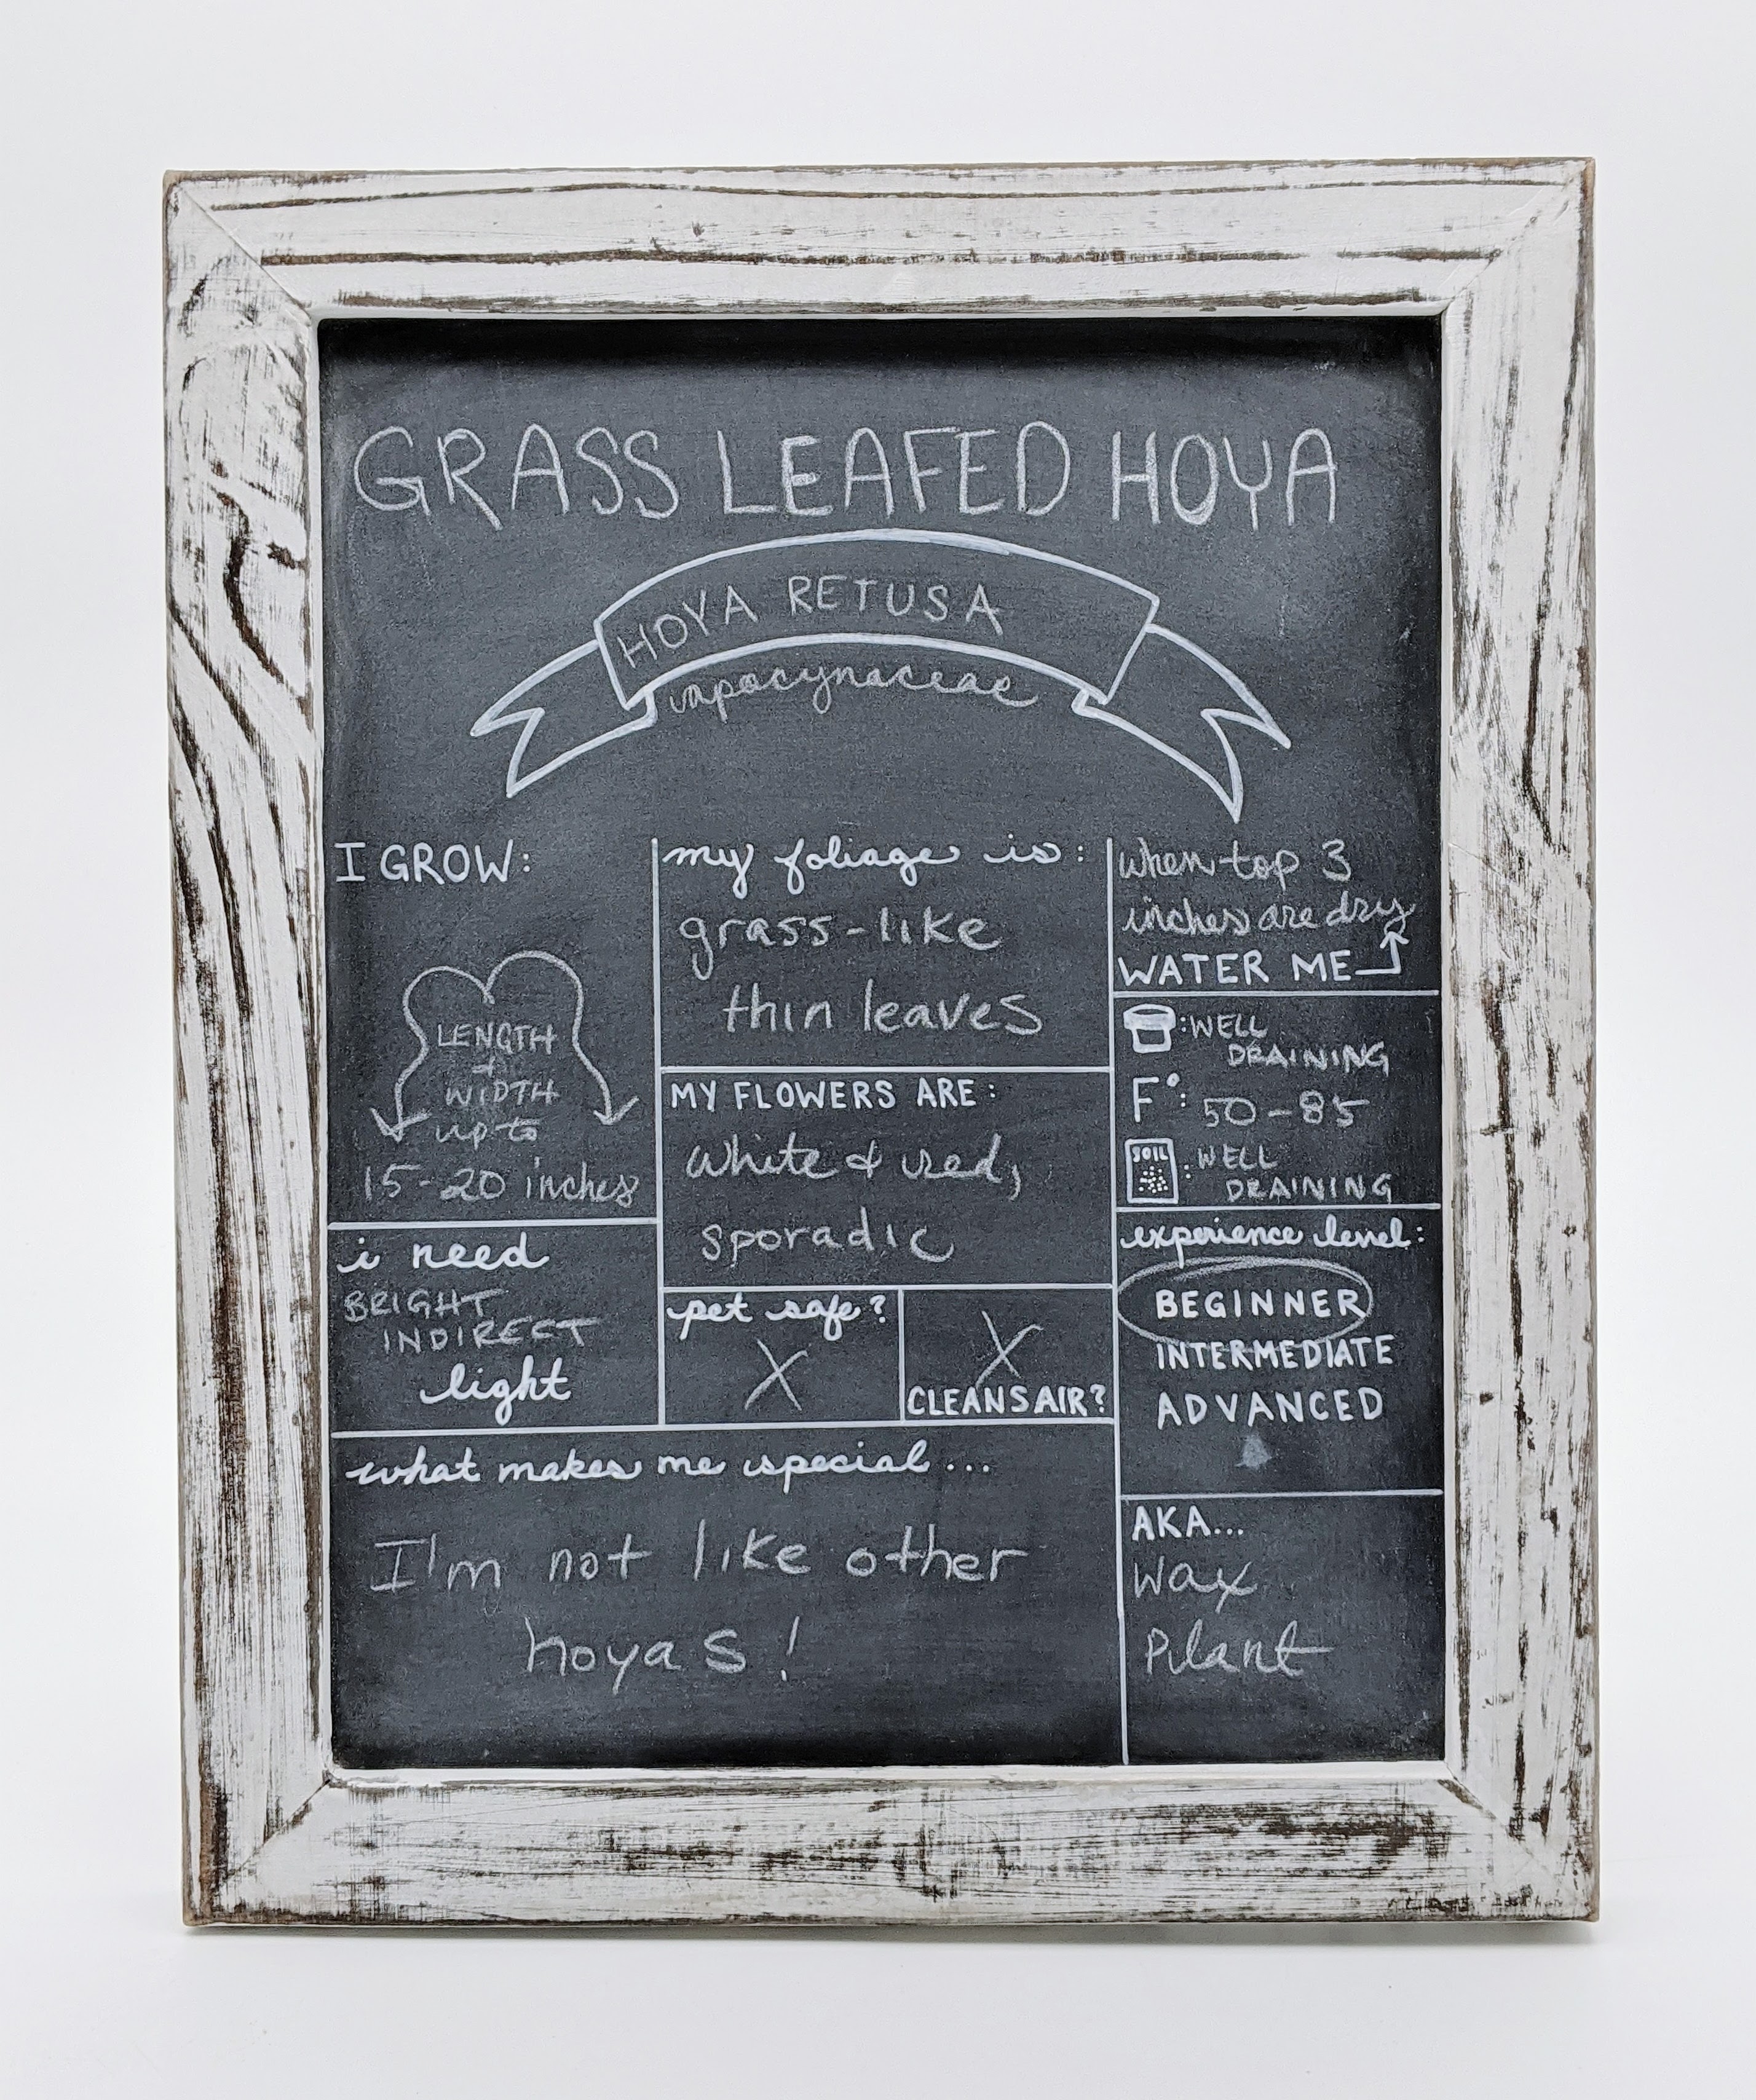 GRASS LEAFED HOYA
HOYA RETUSA
apocynaceae
I GROW:
LENGTH
+
WIDTH
up to
15-20 inches
i need
BRIGHT
INDIRECT
light
my foliage is:
grass-like
thin leaves
MY FLOWERS ARE:
white & red,
sporadic
pet safe?
X
X
CLEANS AIR?
what makes me special...
I'm not like other
hoyas!
when top 3
inches are dry
WATER ME
:WELL
DRAINING
F°: 50-85
SOIL
: WELL
DRAINING
experience level:
BEGINNER
INTERMEDIATE
ADVANCED
AKA...
Wax
Plant